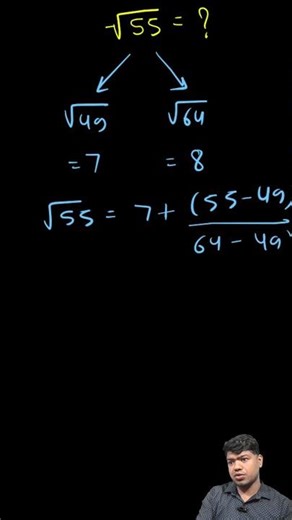 √55 = ?
√49 √64
= 7 = 8
√55 = 7 + (55 - 49)
64 - 49